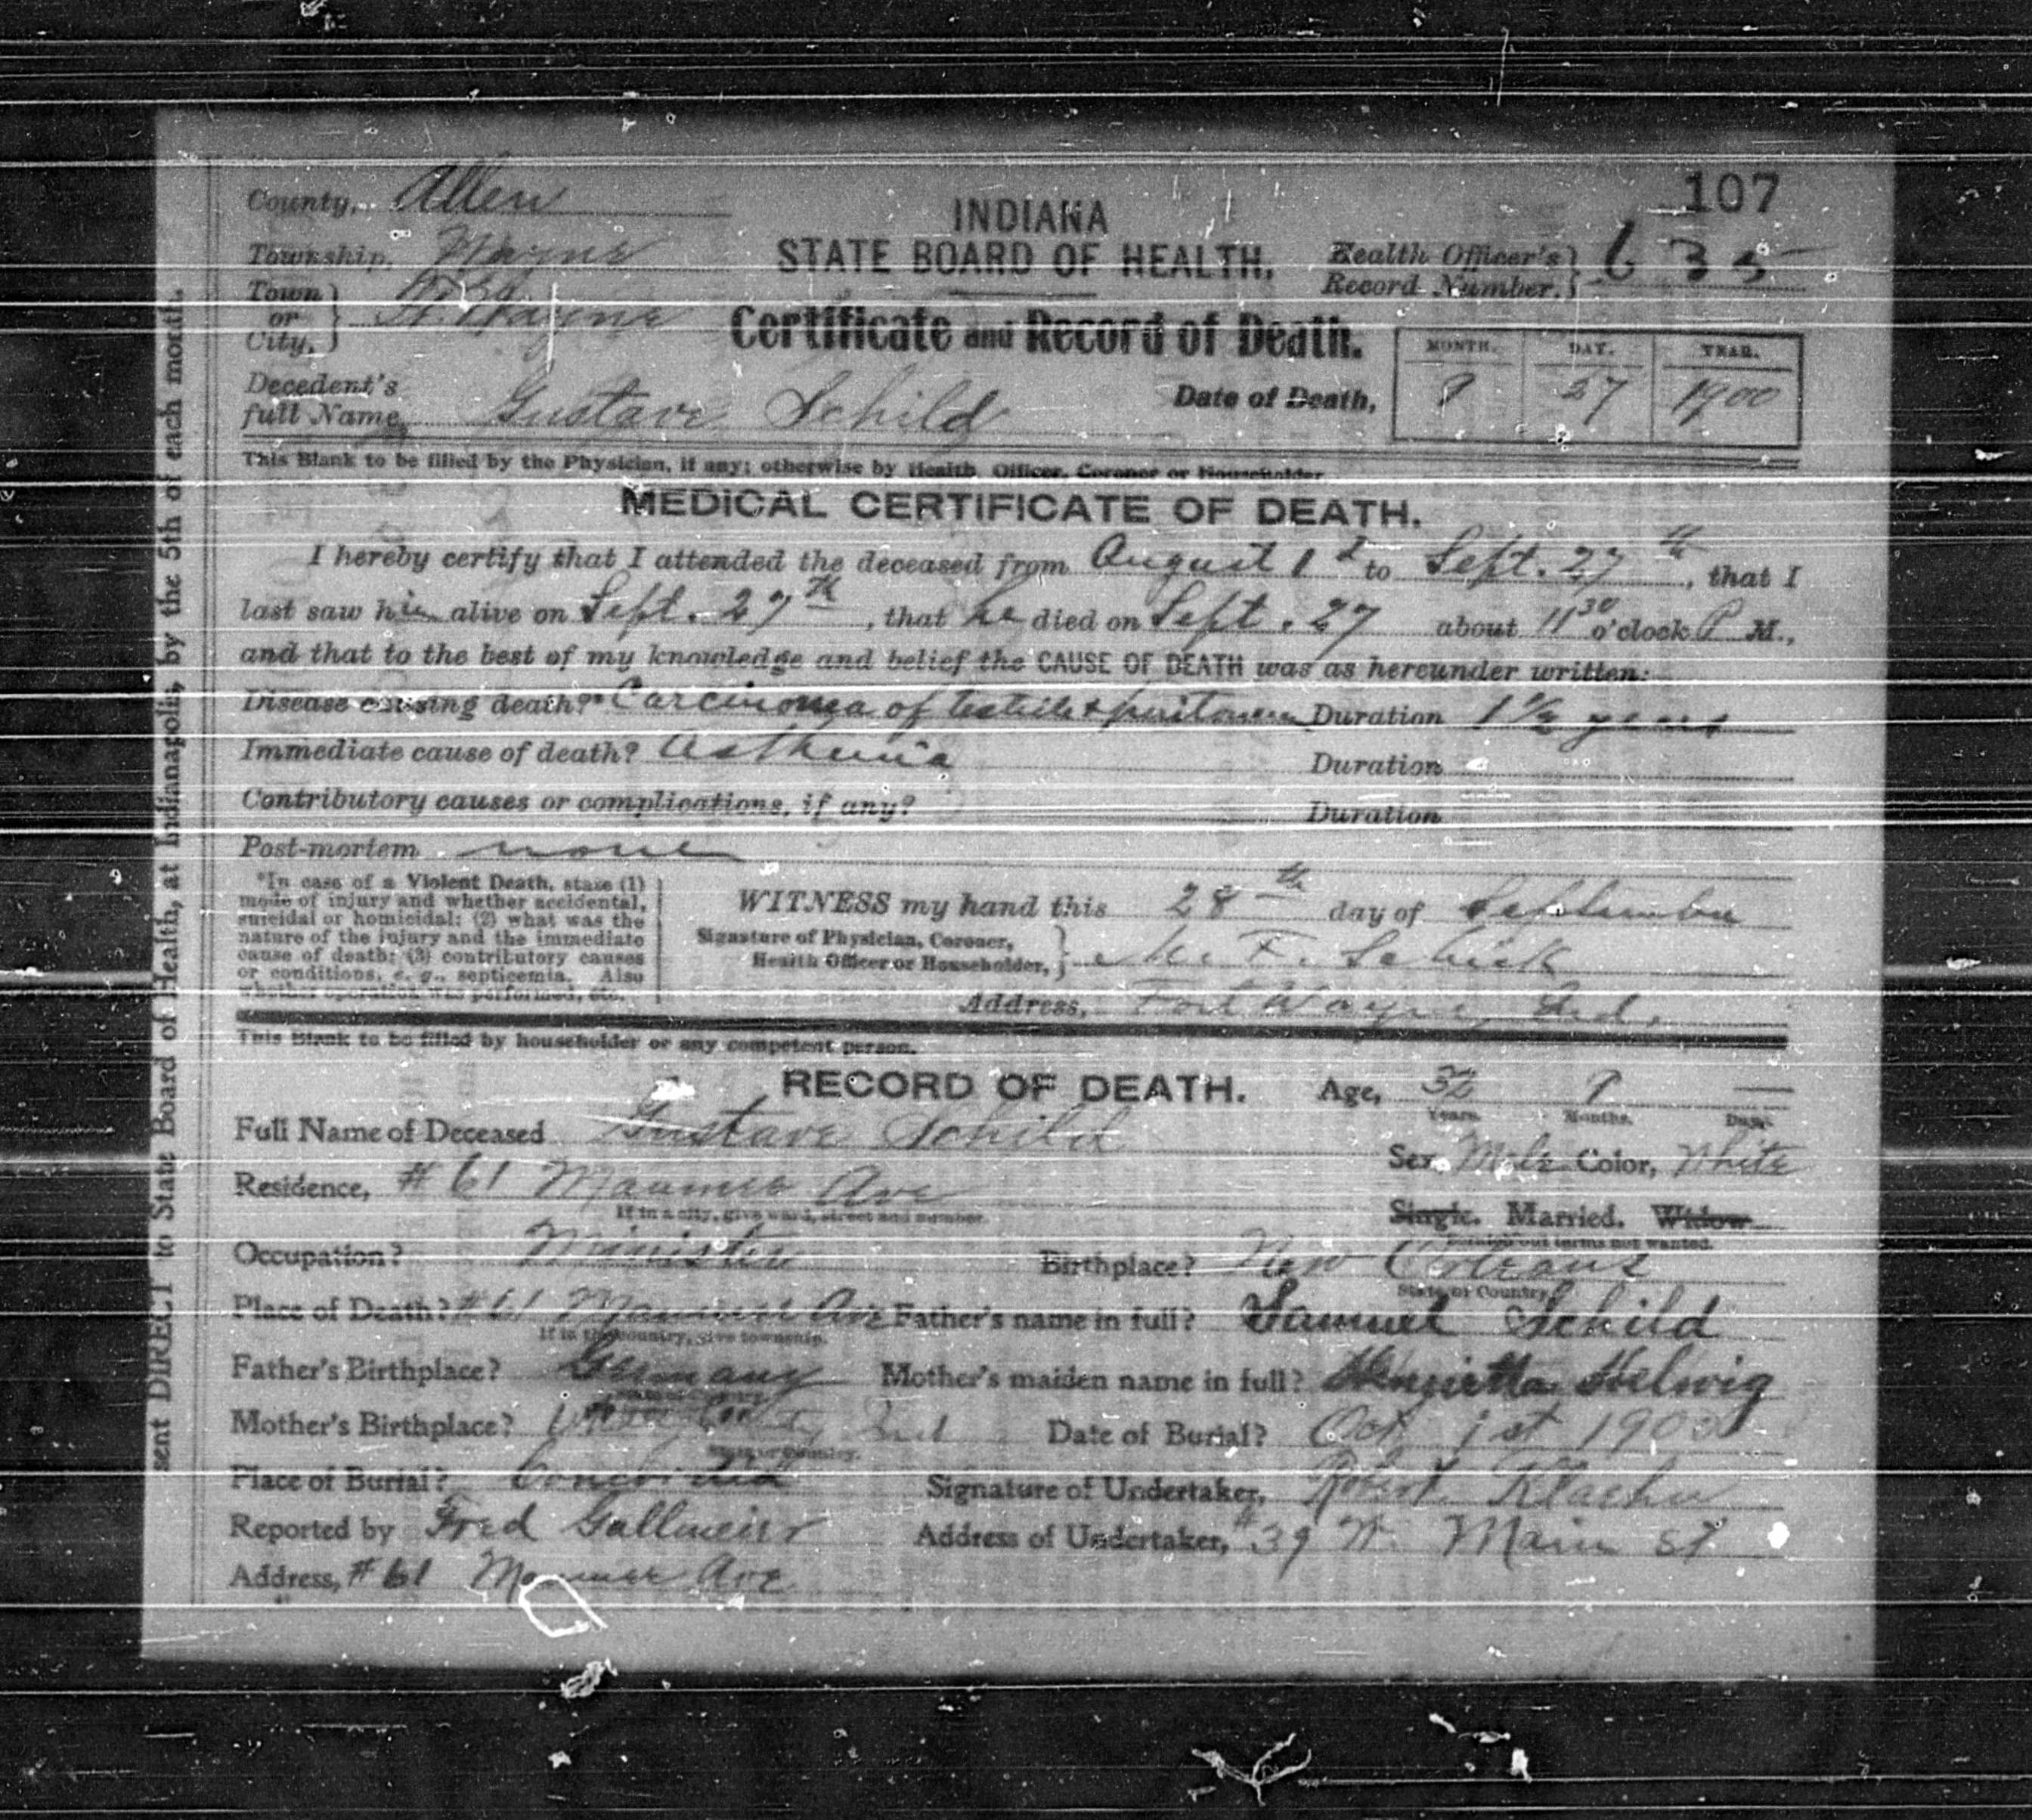 107
County, Allen
INDIANA
Township, Wayne
STATE BOARD OF HEALTH.
Health Officer's Record Number. 635
Town or City, Ft. Wayne
Certificate and Record of Death.
MONTH. DAY. YEAR.
Decedent's full Name, Gustave Schild
Date of Death, 9 27 1900
This Blank to be filled by the Physician, if any; otherwise by Health Officer, Coroner or Householder
MEDICAL CERTIFICATE OF DEATH.
I hereby certify that I attended the deceased from August 1 to Sept. 27th, that I
last saw him alive on Sept. 27th, that he died on Sept. 27 about 11 30 o'clock P M.,
and that to the best of my knowledge and belief the CAUSE OF DEATH was as hereunder written:
Disease causing death?* Carcinoma of testicle & peritoneum Duration 1 1/2 years
Immediate cause of death? Asthenia Duration
Contributory causes or complications, if any? Duration
Post-mortem none
*In case of a Violent Death, state (1)
mode of injury and whether accidental,
suicidal or homicidal; (2) what was the
nature of the injury and the immediate
cause of death; (3) contributory causes
or conditions, e. g., septicemia. Also
whether operation was performed, etc.
WITNESS my hand this 28th day of September
Signature of Physician, Coroner, Health Officer or Householder, M. F. Schick
Address, Fort Wayne, Ind.
This Blank to be filled by householder or any competent person.
RECORD OF DEATH.
Age, 32 9 —
Years. Months. Days.
Full Name of Deceased Gustave Schild
Sex, Male Color, White
Residence, # 61 Maumee Ave
If in a city, give ward, street and number.
Single. Married. Widow
Strike out terms not wanted.
Occupation? Minister
Birthplace? New Orleans
State or Country.
Place of Death? #61 Maumee Ave
If in the country, give township.
Father's name in full? Samuel Schild
Father's Birthplace? Germany
State or Country.
Mother's maiden name in full? Henrietta Helwig
Mother's Birthplace? Ind
State or Country.
Date of Burial? Oct 1st 1900
Place of Burial? Concordia
Signature of Undertaker, Robert Klaehn
Reported by Fred Gallmeier
Address of Undertaker, #39 W. Main St
Address, # 61 Maumee Ave
sent DIRECT to State Board of Health, at Indianapolis, by the 5th of each month.